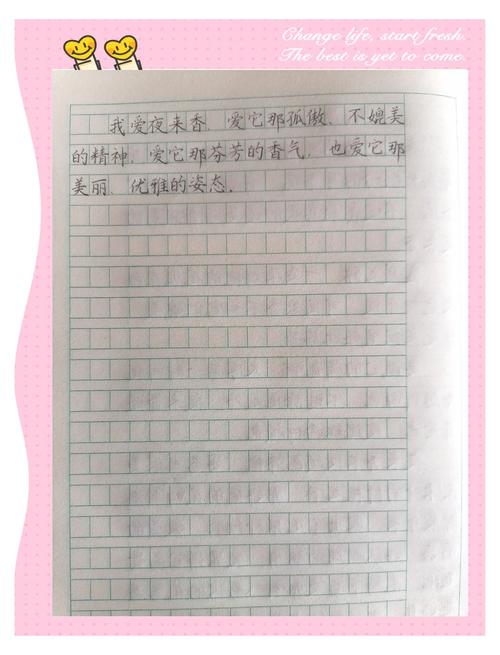 Change life, start fresh.
The best is yet to come.
我爱夜来香，爱它那孤傲、不媲美
的精神，爱它那芬芳的香气，也爱它那
美丽、优雅的姿态。